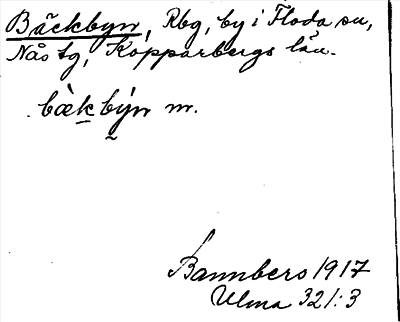 Bäckbyn, Rbg, by i Floda sn,
Nås tg, Kopparbergs län.
bæ̀kbýn m.
Bannbers 1917
Ulma 321:3